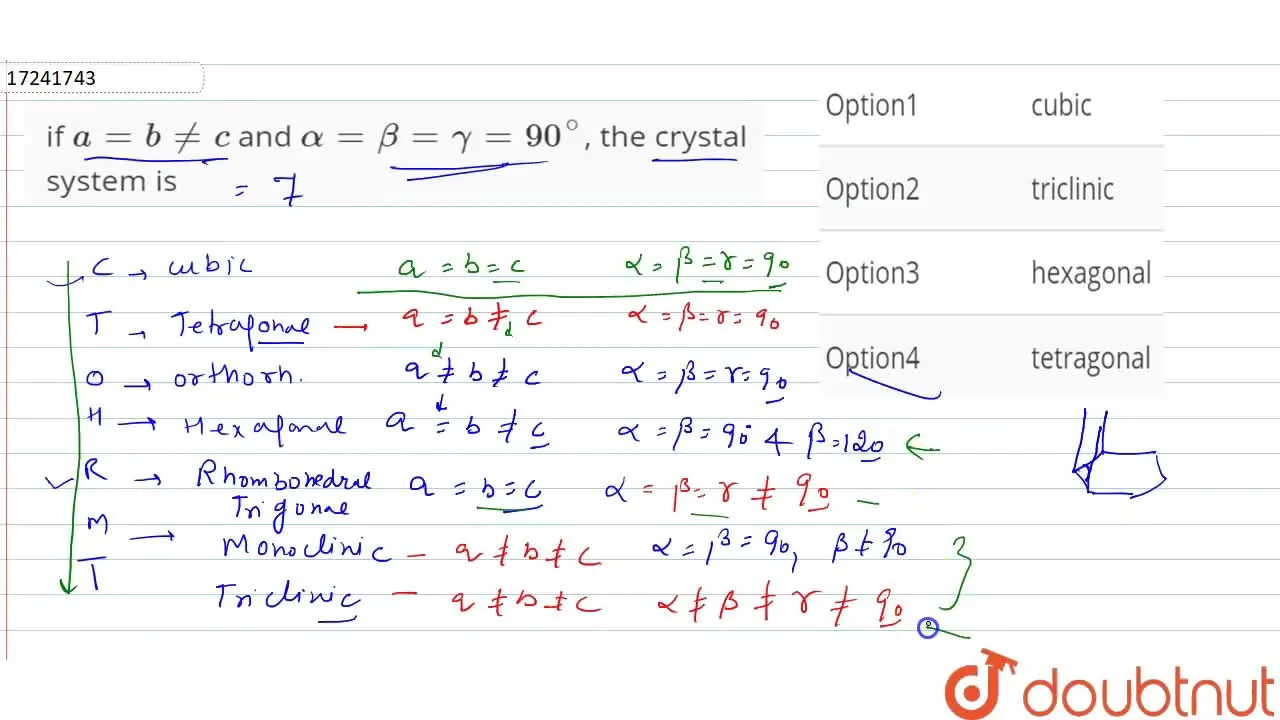 17241743
if a = b ≠ c and α = β = γ = 90°, the crystal
system is = 7
Option1 cubic
Option2 triclinic
Option3 hexagonal
Option4 tetragonal
C → cubic a = b = c α = β = γ = 90
T → Tetragonal → a = b ≠ c α = β = γ = 90
O → orthorh. a ≠ b ≠ c α = β = γ = 90
H → Hexagonal a = b ≠ c α = β = 90° & β = 120 ←
R → Rhombohedral a = b = c α = β = γ ≠ 90 –
Trigonal
M → Monoclinic – a ≠ b ≠ c α = β = 90, β ≠ 90
T Triclinic – a ≠ b ≠ c α ≠ β ≠ γ ≠ 90
doubtnut